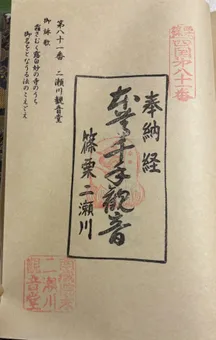 第八十一番 二瀬川観音堂
御詠歌
霧さむく露白妙の寺のうち
御名をとなうる法のこえごえ
奉納経
本尊千手観音
篠栗二瀬川
第八十一番
二瀬川
観音堂